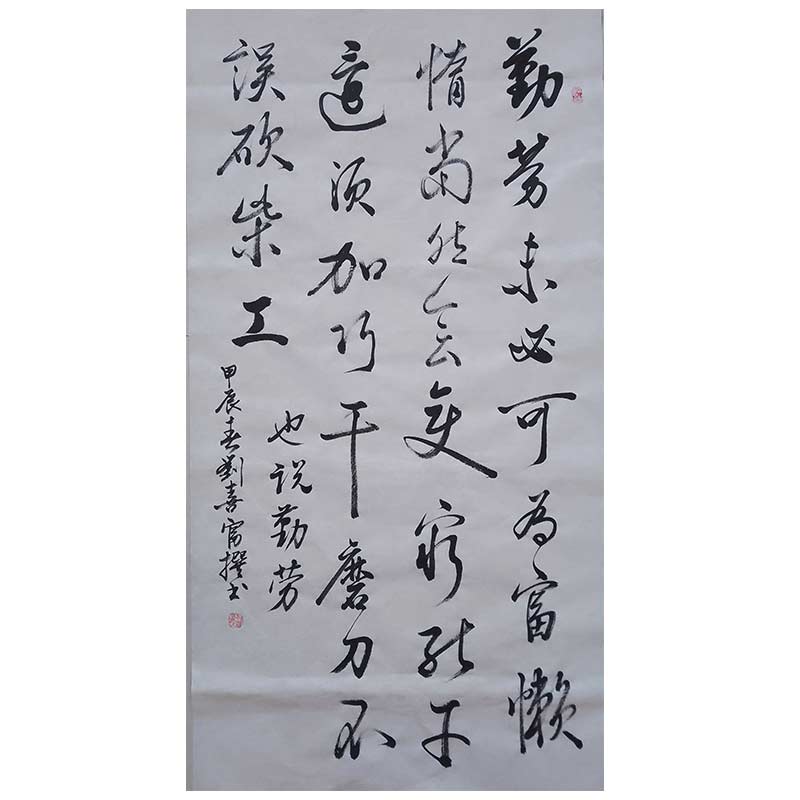 勤劳未必可为富懒
惰当然会更穷能干
还须加巧干磨刀不
误砍柴工
也说勤劳
甲辰春刘喜富撰书